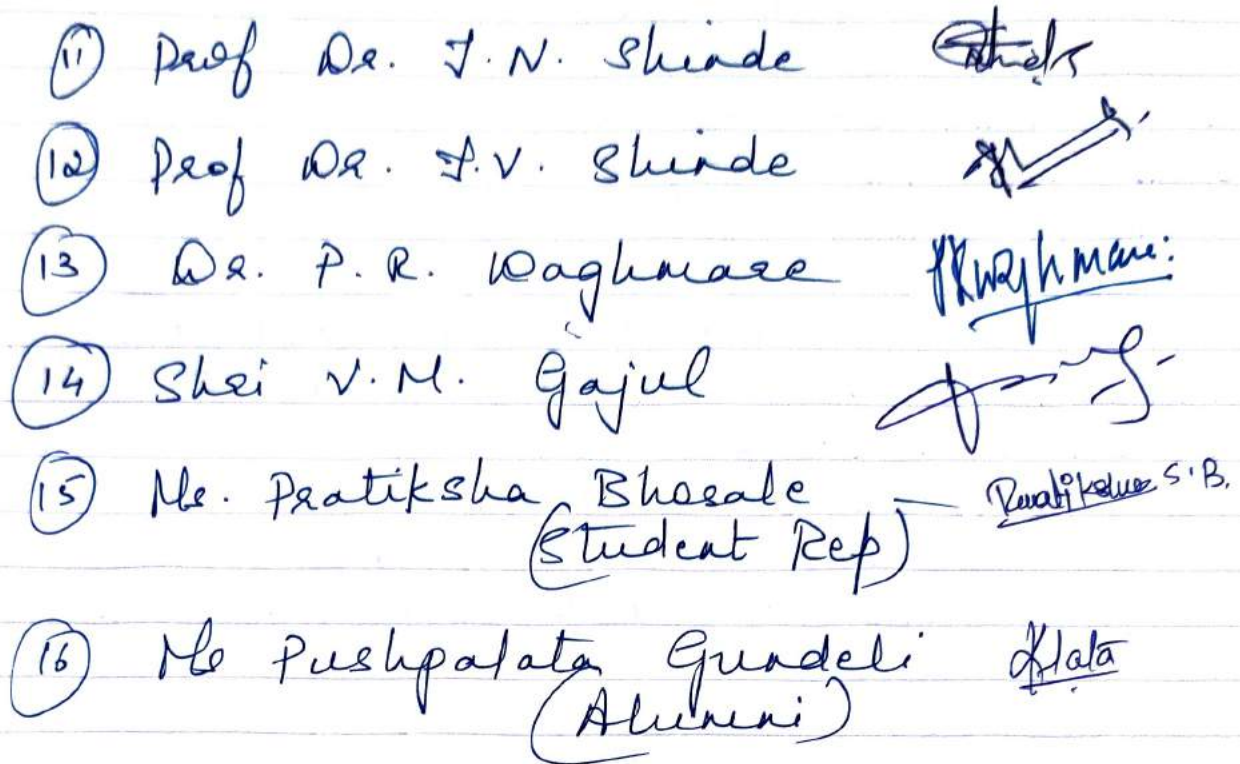 11 Prof Dr. J. N. Shinde
12 Prof Dr. J. V. Shinde
13 Dr. P. R. Waghmare PRWaghmare
14 Shri V. M. Gajul
15 Ms. Pratiksha Bhosale — Pratiksha S. B.
(Student Rep)
16 Ms Pushpalata Gundeli
(Alumni)